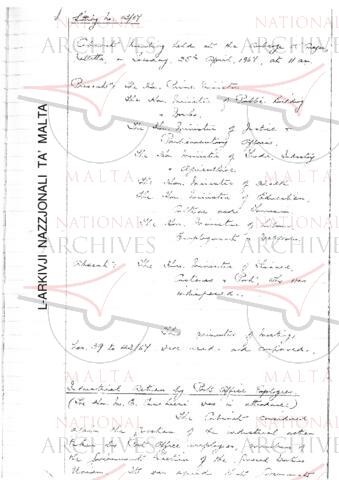 Sitting No.
Cabinet Meeting held at the
Valletta on Tuesday, 25th April, 1967, at 11 am.
Present: The Hon. Prime Minister
The Hon. Minister of Public Building
& Works.
The Hon. Minister of Justice &
Parliamentary Affairs.
The Hon. Minister of Trade, Industry
& Agriculture.
The Hon. Minister of Health
The Hon. Minister of Education,
Culture and Tourism
The Hon. Minister of Labour,
Employment & Welfare.
Absent: The Hon. Minister of Finance,
Customs & Port, who was
indisposed.
The minutes of meeting
Nos. 39 to 42/67 were read and confirmed.
Industrial Action by Post Office Employees
(The Hon. M. was in attendance)
The Cabinet considered
again the question of the industrial action
taken by Post Office employees, members of
the Government Section of the General Workers
Union. It was agreed that
L-ARKIVJI NAZZJONALI TA MALTA
NATIONAL
ARCHIVES
MALTA